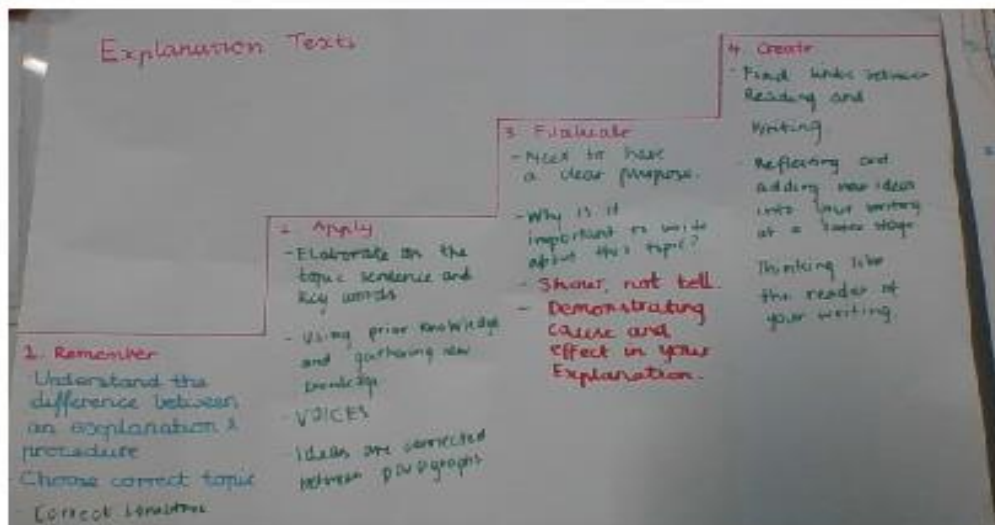 Explanation Texts
1. Remember
Understand the
difference between
an explanation &
procedure
Choose correct topic
Correct structure
2. Apply
- Elaborate on the
topic sentence and
key words
- Using prior knowledge
and gathering new
knowledge
- VOICES
Ideas are connected
between paragraphs
3. Evaluate
- Need to have
a clear purpose.
- Why is it
important to write
about this topic?
- Show, not tell.
- Demonstrating
cause and
effect in your
Explanation.
4. Create
- Find links between
Reading and
Writing
- Reflecting and
adding new ideas
into your writing
at a later stage
Thinking like
the reader of
your writing.